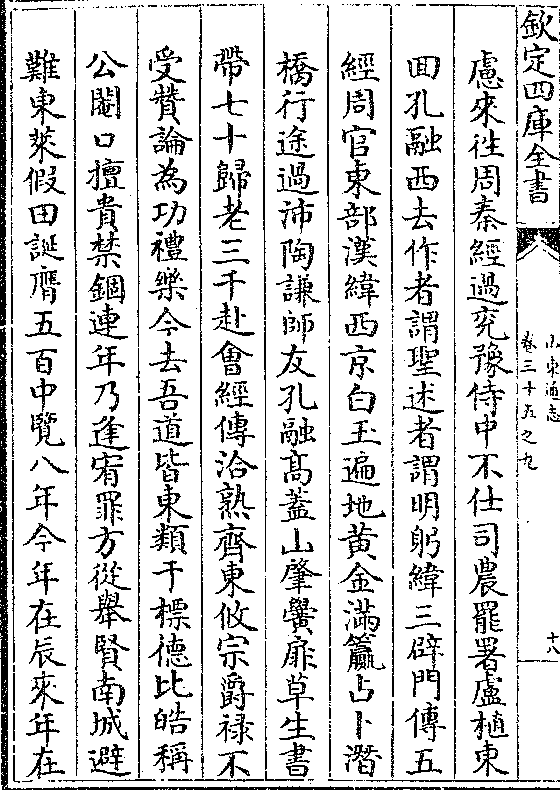 欽定四庫全書
山東通志
卷三十五之九
十八
慮來往周秦經過兖豫侍中不仕司農罷署盧植東
回孔融西去作者謂聖述者謂明躬緯三辟門傳五
經周官東部漢緯西京白玉遍地黄金滿籯占卜潛
橋行途過沛陶謙師友孔融髙葢山肇黌扉草生書
帶七十歸老三千赴會經傳洽熟齊東攸宗爵禄不
受賛論為功禮樂今去吾道皆東類干標徳比皓稱
公閹口擅貴禁錮連年乃逢宥罪方從舉賢南城避
難東萊假田誕膺五百中覽八年今年在辰來年在